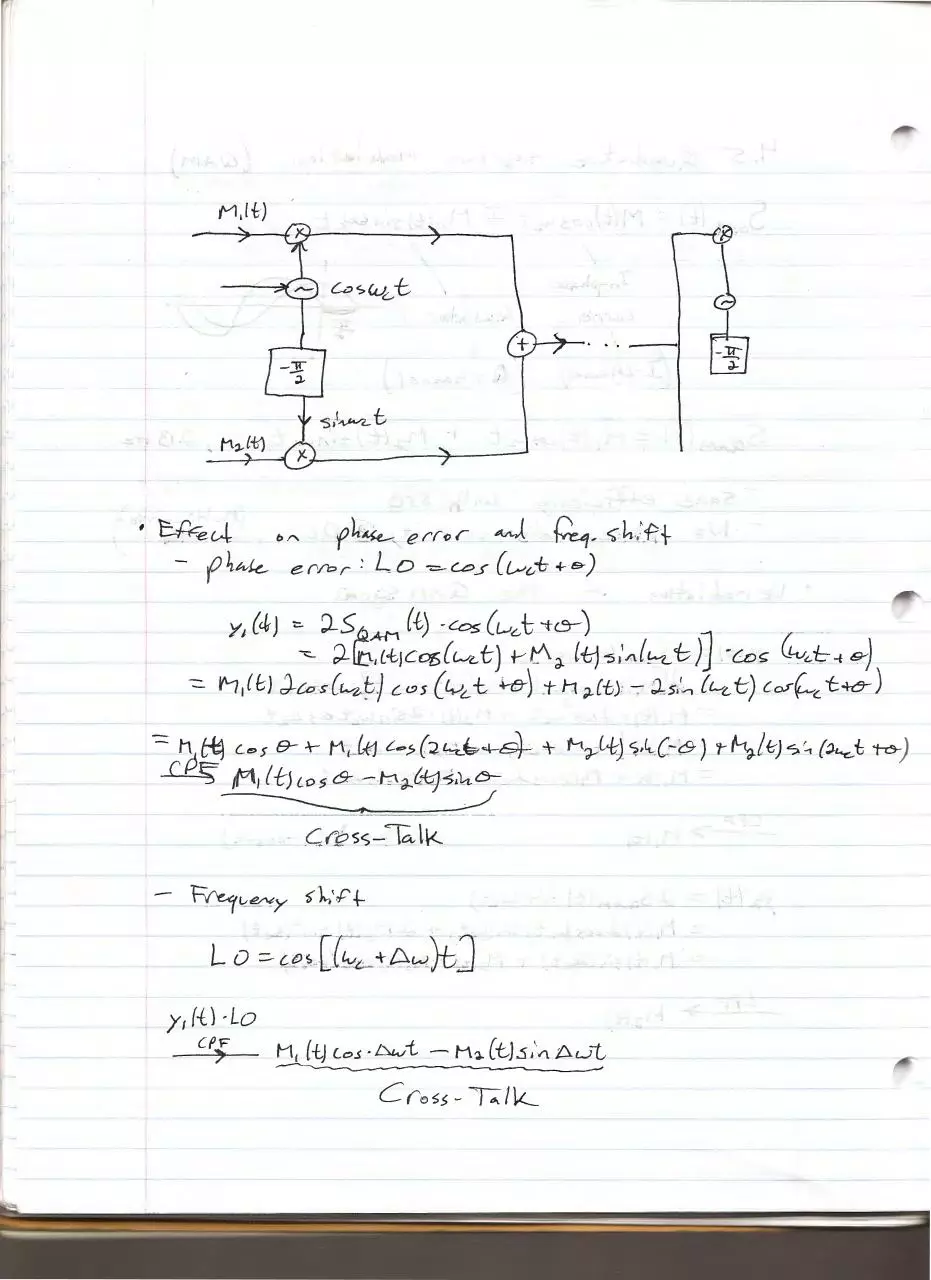 M₁(t)
×
×
~ cosω_ct
~
-π/2
+ ...
-π/2
sinω_ct
M₂(t)
×
• Effect on phase error and freq. shift
- phase error: LO = cos(ω_ct + θ)
y₁(t) = 2S_QAM(t) · cos(ω_ct + θ)
= 2[M₁(t)cos(ω_ct) + M₂(t)sin(ω_ct)] · cos(ω_ct + θ)
= M₁(t) 2cos(ω_ct) cos(ω_ct + θ) + M₂(t) - 2sin(ω_ct) cos(ω_ct + θ)
= M₁(t) cos θ + M₁(t) cos(2ω_ct + θ) + M₂(t) sin(-θ) + M₂(t) sin(2ω_ct + θ)
CPF M₁(t) cos θ - M₂(t) sin θ
Cross-Talk
- Frequency shift
LO = cos[(ω_c + Δω)t]
y₁(t) · LO
CPF M₁(t) cos · Δωt - M₂(t) sin Δωt
Cross-Talk